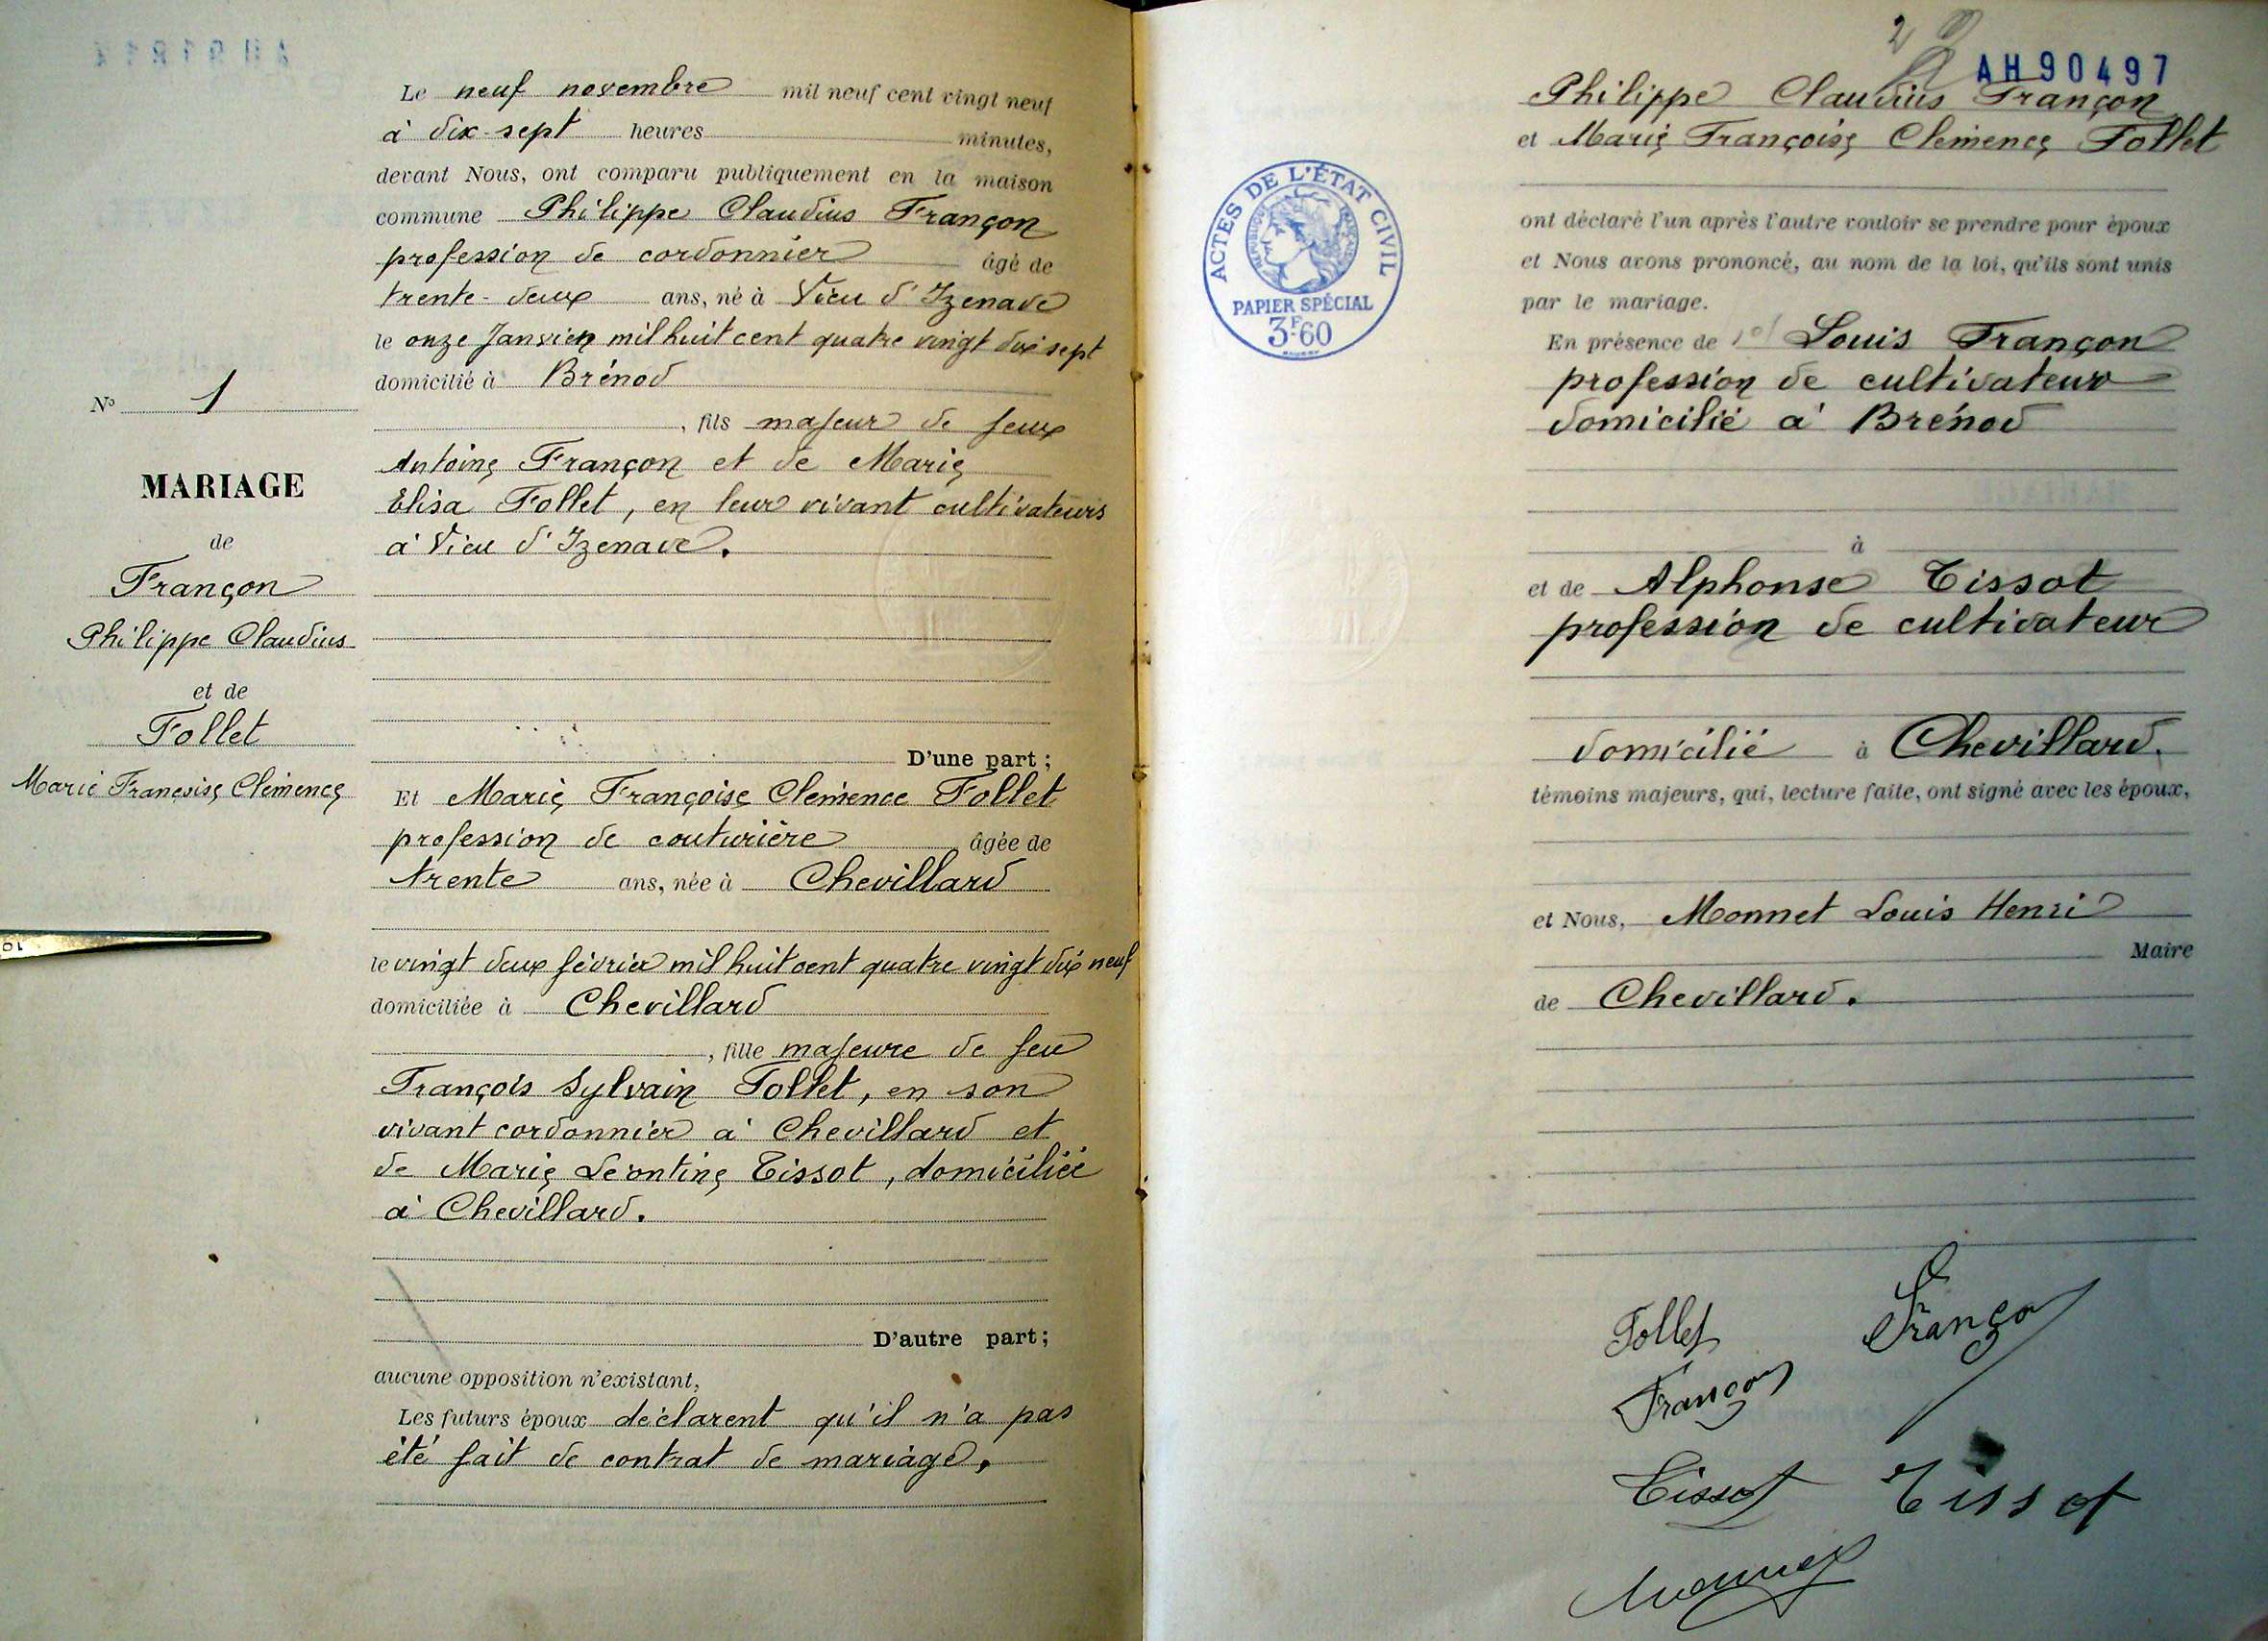 N° 1
MARIAGE
de
Françon
Philippe Claudius
et de
Follet
Marie Françoise Clémence
Le neuf novembre mil neuf cent vingt neuf
à dix-sept heures minutes,
devant Nous, ont comparu publiquement en la maison
commune Philippe Claudius Françon
profession de cordonnier âgé de
trente-deux ans, né à Vieu d'Izenave
le onze Janvier mil huit cent quatre vingt dix sept
domicilié à Brénod
, fils majeur de feux
Antoine Françon et de Marie
Elisa Follet, en leur vivant cultivateurs
à Vieu d'Izenave.
D'une part ;
Et Marie Françoise Clémence Follet
profession de couturière âgée de
trente ans, née à Chevillard
le vingt deux février mil huit cent quatre vingt dix neuf
domiciliée à Chevillard
, fille majeure de feu
François Sylvain Follet, en son
vivant cordonnier à Chevillard et
de Marie Léontine Tissot, domiciliée
à Chevillard.
D'autre part ;
aucune opposition n'existant,
Les futurs époux déclarent qu'il n'a pas
été fait de contrat de mariage.
2
AH90497
Philippe Claudius Françon
et Marie Françoise Clémence Follet
ACTES DE L'ÉTAT CIVIL
PAPIER SPÉCIAL
3F60
ont déclaré l'un après l'autre vouloir se prendre pour époux
et Nous avons prononcé, au nom de la loi, qu'ils sont unis
par le mariage.
En présence de 1° Louis Françon
profession de cultivateur
domicilié à Brénod
à
et de Alphonse Tissot
profession de cultivateur
domicilié à Chevillard.
témoins majeurs, qui, lecture faite, ont signé avec les époux,
et Nous, Monnet Louis Henri
Maire
de Chevillard.
Follet Françon
Françon
Tissot Tissot
Monnet
10